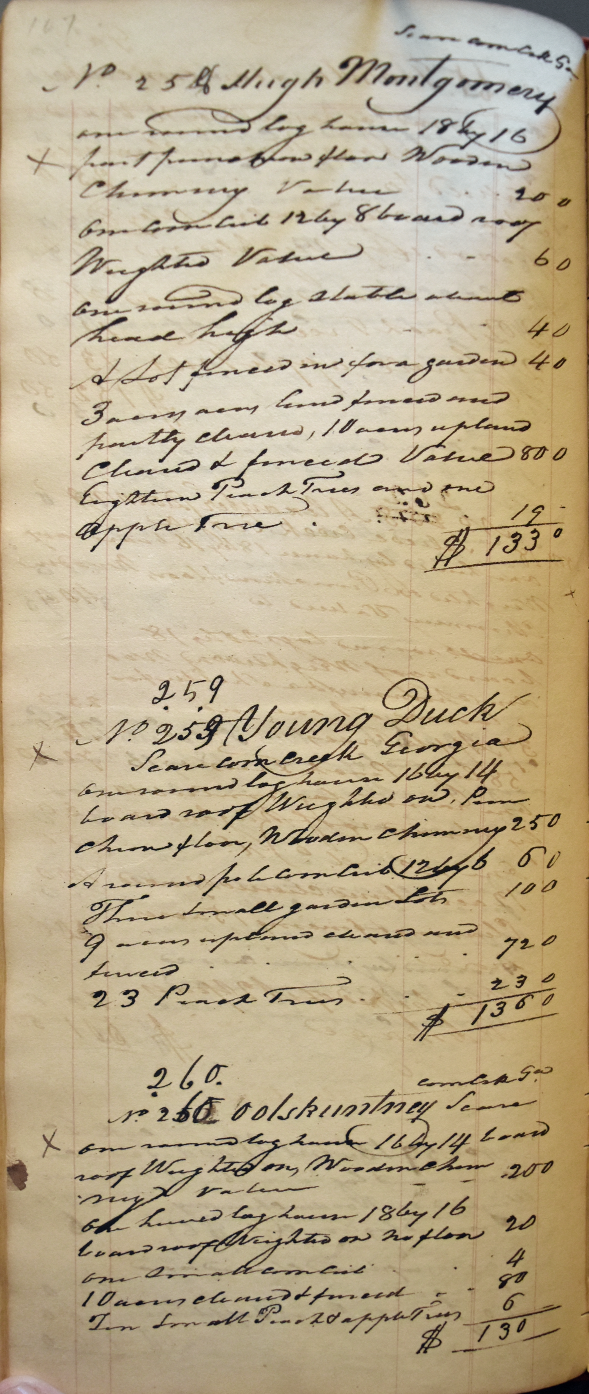 107.
Scarecorn Crk Ga
No 258 Hugh Montgomery
one round log house 18 by 16
part puncheon floor Wooden
Chimney Value 20 0
One Corn Crib 12 by 8 board roof
Weighted Value 6 0
one round log Stable about
head high 4 0
A Lot fenced in for a garden 4 0
3 acres land fenced and
partly cleared, 10 acres upland
Cleared & fenced Value 80 0
Eighteen Peach Trees and one
apple Tree 19
$ 133 0
259
No 259 Young Duck
Scarecorn Creek Georgia
one round log house 16 by 14
board roof Weighted on, Pun
cheon floor, Wooden Chimney 25 0
A round pole Corn Crib 12 by 6 6 0
Three Small garden Lots 10 0
9 acres upland cleared and
fenced 72 0
23 Peach Trees 23 0
$ 136 0
260.
corn Crk Ga
No 260 Oolskuntney Scare
one round log house 16 by 14 board
roof Weighted on, Wooden Chim
ney Value 200
One hewed log house 18 by 16
board roof Weighted on no floor 20
one Small Corn Crib 4
10 acres cleared & fenced 80
Ten Small Peach & apple Trees 6
$ 130